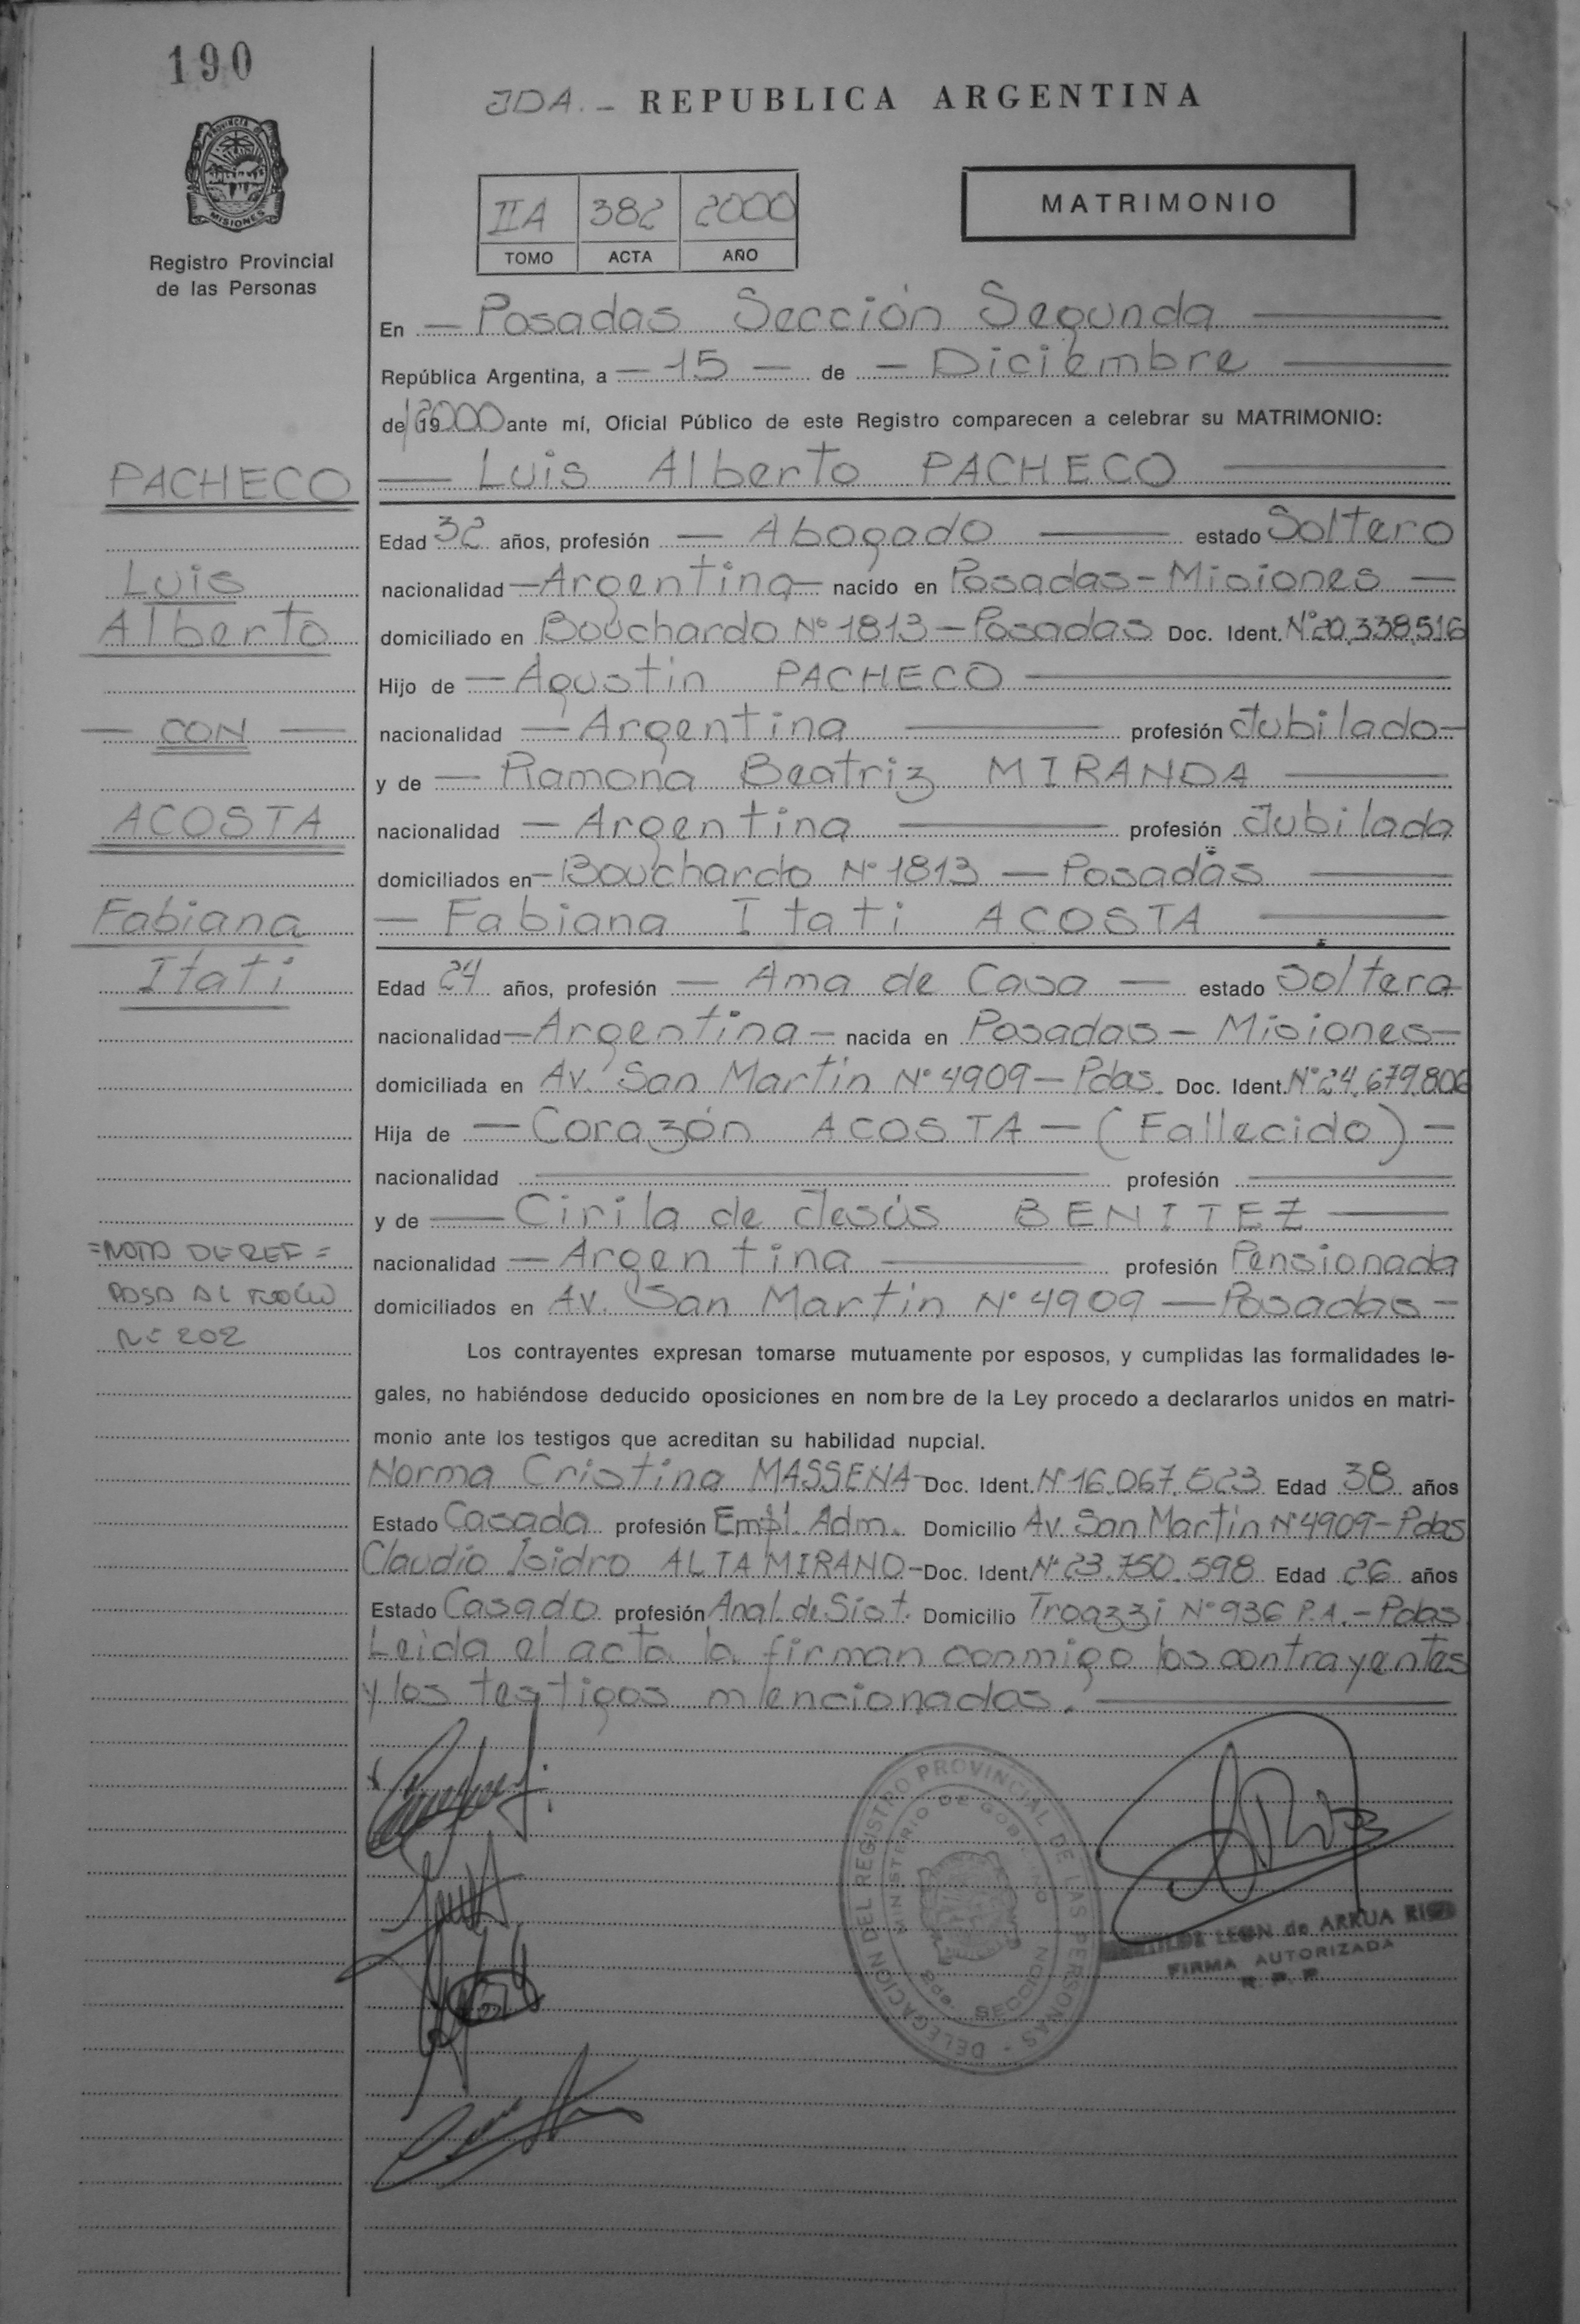 190
JDA. - REPUBLICA ARGENTINA
PROVINCIA DE
MISIONES
Registro Provincial
de las Personas
IIA 382 2000
TOMO ACTA AÑO
MATRIMONIO
En — Posadas Sección Segunda —
República Argentina, a — 15 — de — Diciembre —
de 19 2000 ante mí, Oficial Público de este Registro comparecen a celebrar su MATRIMONIO:
PACHECO
— Luis Alberto PACHECO —
Edad 32 años, profesión — Abogado — estado Soltero
Luis
nacionalidad — Argentina — nacido en Posadas - Misiones —
Alberto
domiciliado en Bouchardo Nº 1813 - Posadas Doc. Ident. Nº 20.338.516
Hijo de — Agustin PACHECO —
— CON —
nacionalidad — Argentina — profesión Jubilado —
y de — Ramona Beatriz MIRANDA —
ACOSTA
nacionalidad — Argentina — profesión Jubilada
domiciliados en — Bouchardo Nº 1813 — Posadas —
Fabiana
— Fabiana Itati ACOSTA —
Itati
Edad 24 años, profesión — Ama de Casa — estado Soltera
nacionalidad — Argentina — nacida en Posadas - Misiones —
domiciliada en Av. San Martin Nº 4909 - Pdas. Doc. Ident. Nº 24.679.806
Hija de — Corazón ACOSTA - (Fallecido) —
nacionalidad — profesión —
y de — Cirila de Jesús BENITEZ —
=NOTA DE REF=
nacionalidad — Argentina — profesión Pensionada
PASA AL FOLIO
domiciliados en Av. San Martin Nº 4909 — Posadas —
Nº 202
Los contrayentes expresan tomarse mutuamente por esposos, y cumplidas las formalidades le-
gales, no habiéndose deducido oposiciones en nombre de la Ley procedo a declararlos unidos en matri-
monio ante los testigos que acreditan su habilidad nupcial.
Norma Cristina MASSENA - Doc. Ident. Nº 16.067.523 Edad 38 años
Estado Casada profesión Empl. Adm. Domicilio Av. San Martin Nº 4909 - Pdas
Claudio Isidro ALTAMIRANO - Doc. Ident. Nº 23.750.598 Edad 26 años
Estado Casado profesión Anal. de Sist. Domicilio Troazzi Nº 936 P.A. - Pdas
Leida el acta la firman conmigo los contrayentes
y los testigos mencionados. —
DELEGACION DEL REGISTRO PROVINCIAL DE LAS PERSONAS
MINISTERIO DE GOBIERNO
2da. SECCION
LEON de ARRUA
FIRMA AUTORIZADA
R. P. P.